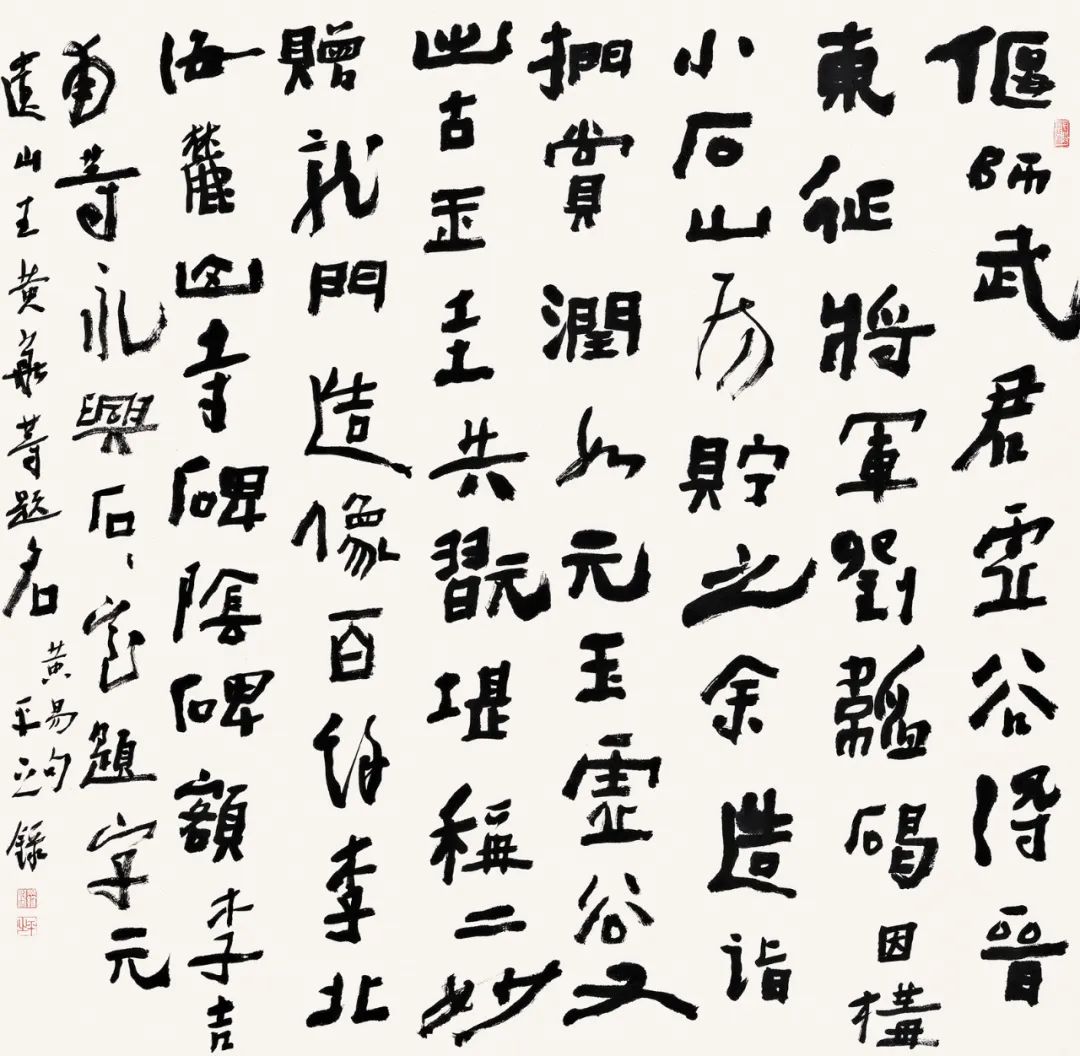 偃師武君虛谷得晉
東征將軍劉韜碣因構
小石山房貯之余造詣
捫賞潤如元玉虛谷又
出古玉圭共翫堪稱二妙
贈龍門造像百餘李北
海麓山寺碑陰碑額李吉
甫等永興石〻室題字元
遺山王黃華等題名
黃易句
平之錄